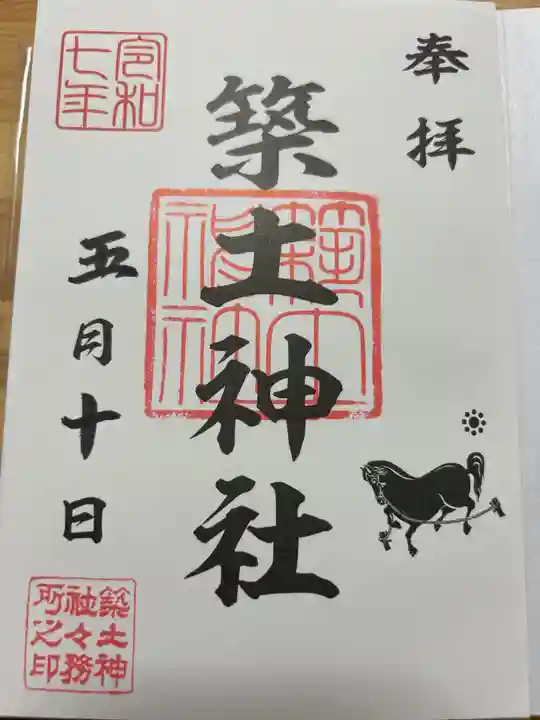 奉拝
築土神社
築土神社
令和
七年
五月十日
築土神
社々務
所之印